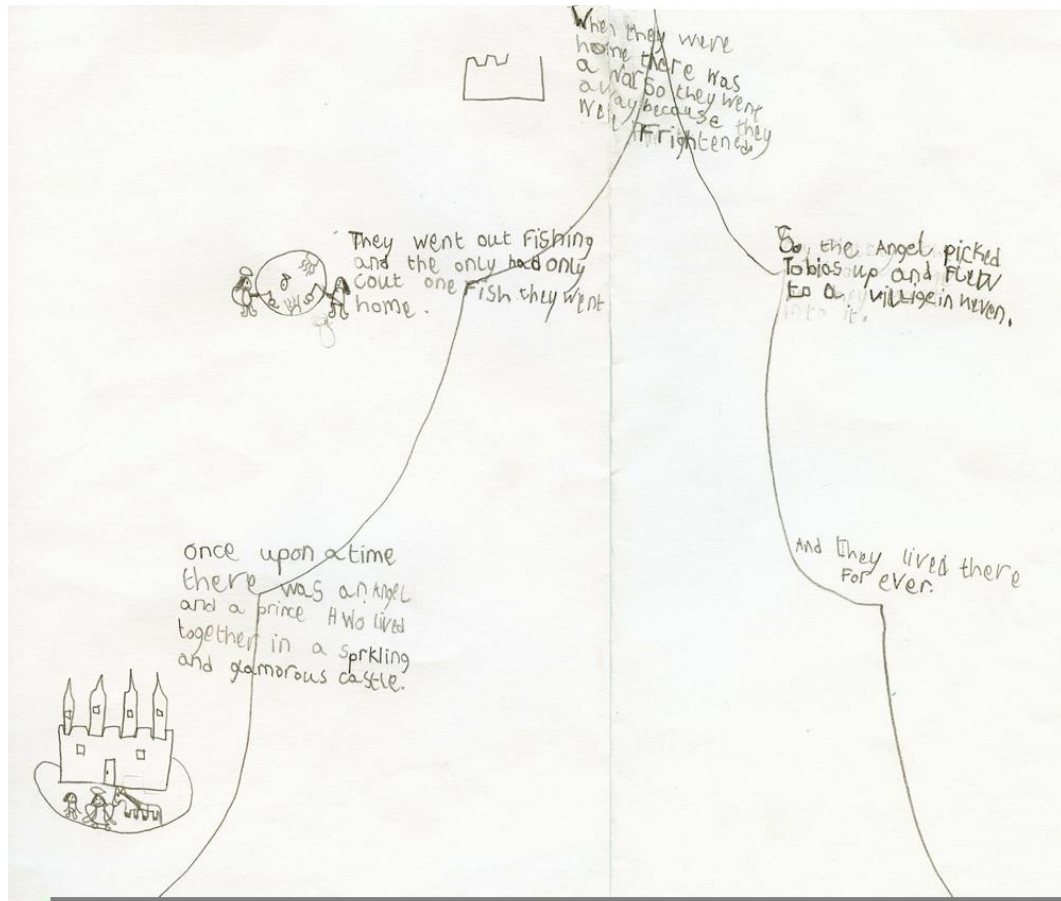 once upon a time
there was an Angel
and a prince Hwo lived
together in a sprkling
and glamorous castle.
They went out Fishing
and the only had only
cout one Fish they went
home.
When they were
home there was
a war So they went
away because they
were Frightened
So the Angel picked
Tobias up and FLEW
to a village in heven.
And they lived there
For ever.